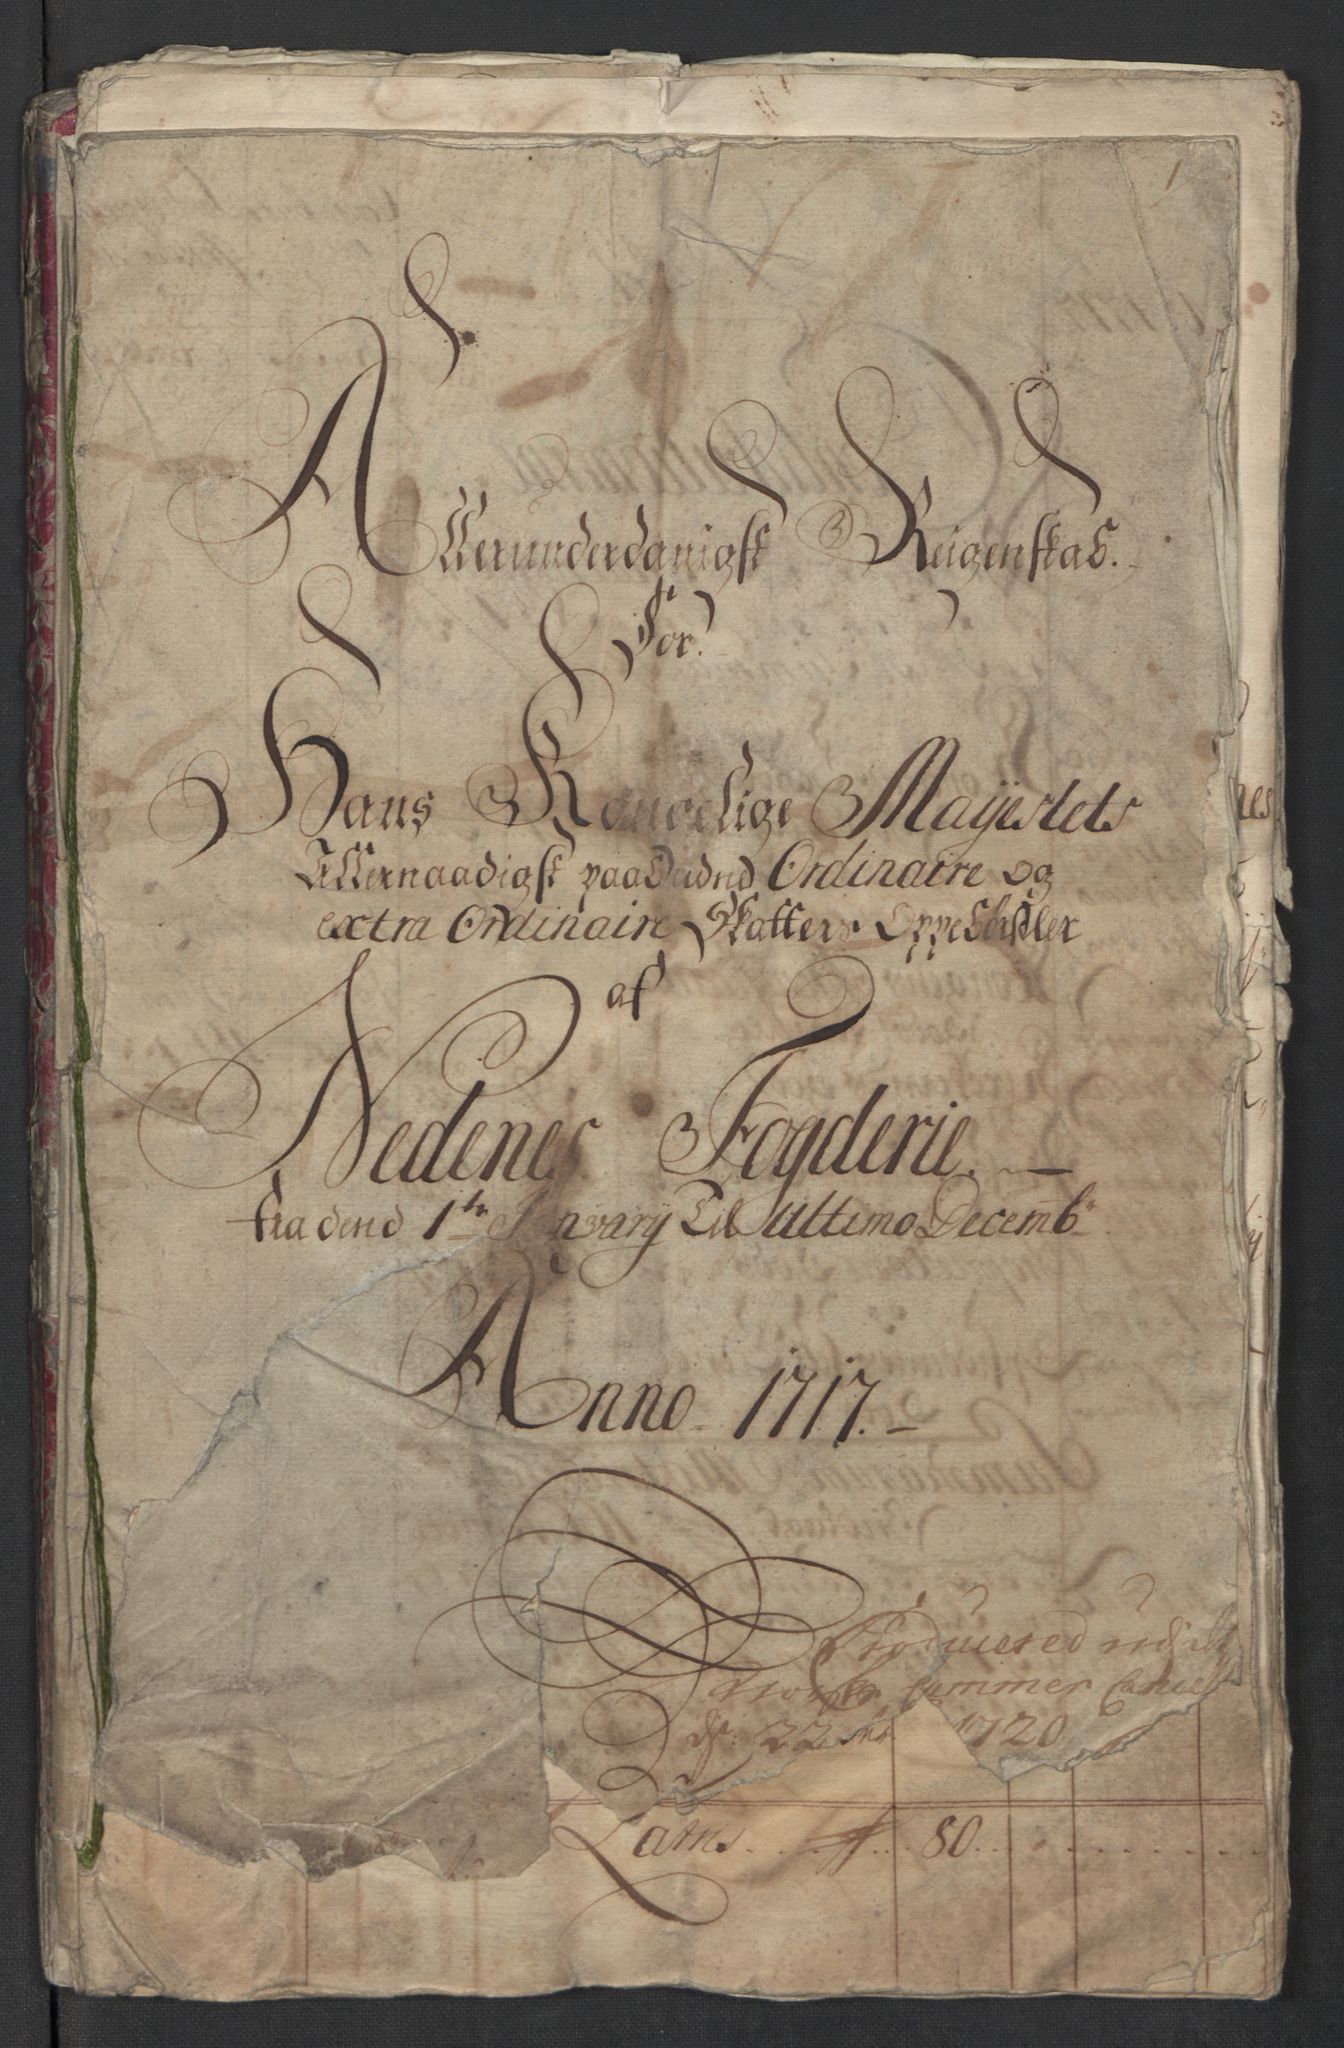 1
Allerunderdanigst Reigenskab.
For.
Hans Kongelige Mayestets
Allernaadigst paabudne Ordinaire og
extra Ordinaire Skatters Oppebørsler
af
Nedenes Fogderie.
fra dend 1te January Til Ultimo Decembr
Anno 1717.
Producered udi det
Norske Cammer Cancell
d: 22 1720
Latus . . . . . 80 . . . . . .
nes